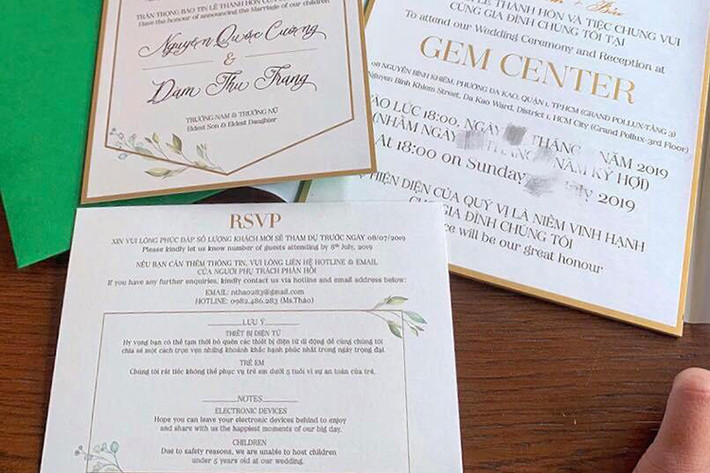 TRÂN TRỌNG BÁO TIN LỄ THÀNH HÔN CỦA
Have the honour of announcing the Marriage of our children
Nguyễn Quốc Cường
&
Đàm Thu Trang
TRƯỞNG NAM & TRƯỞNG NỮ
Eldest Son & Eldest Daughter
LỄ THÀNH HÔN VÀ TIỆC CHUNG VUI
CÙNG GIA ĐÌNH CHÚNG TÔI TẠI
To attend our Wedding Ceremony and Reception at
GEM CENTER
08 NGUYỄN BỈNH KHIÊM, PHƯỜNG ĐA KAO, QUẬN 1, TP.HCM (GRAND POLLUX-TẦNG 3)
Nguyen Binh Khiem Street, Da Kao Ward, District 1, HCM City (Grand Pollux-3rd Floor)
VÀO LÚC 18:00, NGÀY THÁNG NĂM 2019
(NHẰM NGÀY THÁNG NĂM KỶ HỢI)
At 18:00 on Sunday July 2019
HIỆN DIỆN CỦA QUÝ VỊ LÀ NIỀM VINH HẠNH
CỦA GIA ĐÌNH CHÚNG TÔI
will be our great honour
RSVP
XIN VUI LÒNG PHÚC ĐÁP SỐ LƯỢNG KHÁCH MỜI SẼ THAM DỰ TRƯỚC NGÀY 08/07/2019
Please kindly let us know number of guests attending by 8th July, 2019
NẾU BẠN CẦN THÊM THÔNG TIN, VUI LÒNG LIÊN HỆ HOTLINE & EMAIL
CỦA NGƯỜI PHỤ TRÁCH PHẢN HỒI
If you have any further enquiries, kindly contact us via hotline and email address below:
EMAIL: nthao283@gmail.com
HOTLINE: 0982.486.283 (Ms.Thảo)
LƯU Ý
THIẾT BỊ ĐIỆN TỬ
Hy vọng bạn có thể tạm thời bỏ quên các thiết bị điện tử di động để cùng chúng tôi
chia sẻ một cách trọn vẹn những khoảnh khắc hạnh phúc nhất trong ngày trọng đại.
TRẺ EM
Chúng tôi rất tiếc không thể phục vụ trẻ em dưới 5 tuổi vì sự an toàn của trẻ.
NOTES
ELECTRONIC DEVICES
Hope you can leave your electronic devices behind to enjoy
and share with us the happiest moments of our big day.
CHILDREN
Due to safety reasons, we are unable to host children
under 5 years old at our wedding.